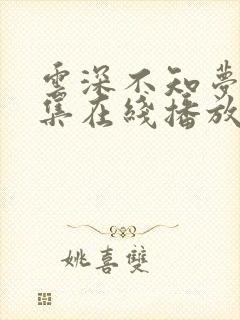 雲深不知夢
集在綫播放
姚喜雙